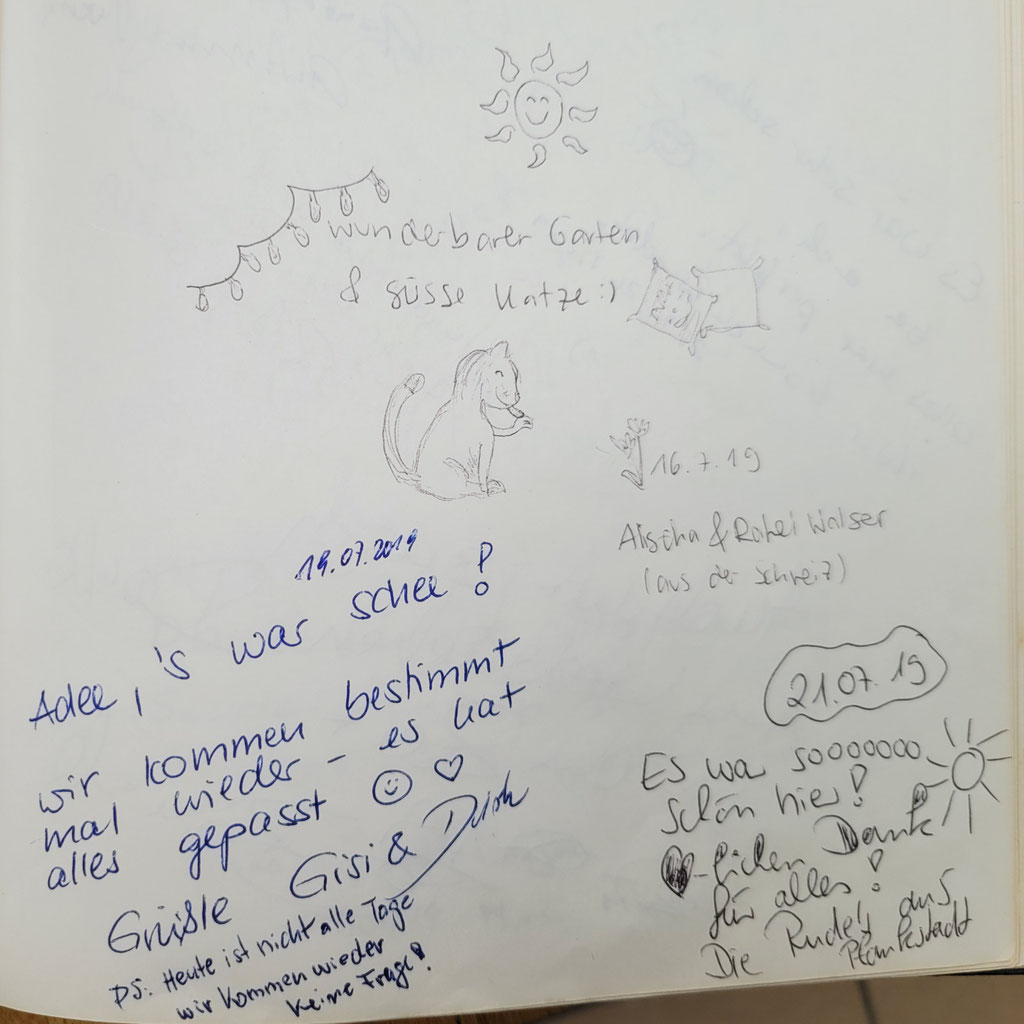 wunderbarer Garten
& süsse Katze :)
16.7.19
Alischa & Rahel Walser
(aus der Schweiz)
19.07.2019
Adee, 's war schee!
wir kommen bestimmt
mal wieder – es hat
alles gepasst ☺ ♡
Grüßle Gisi & Dirk
PS: Heute ist nicht alle Tage
wir kommen wieder
keine Frage!
21.07.19
Es war sooooooo
schön hier!
♥-lichen Dank
für alles!
Die Rudels aus
Plankstadt